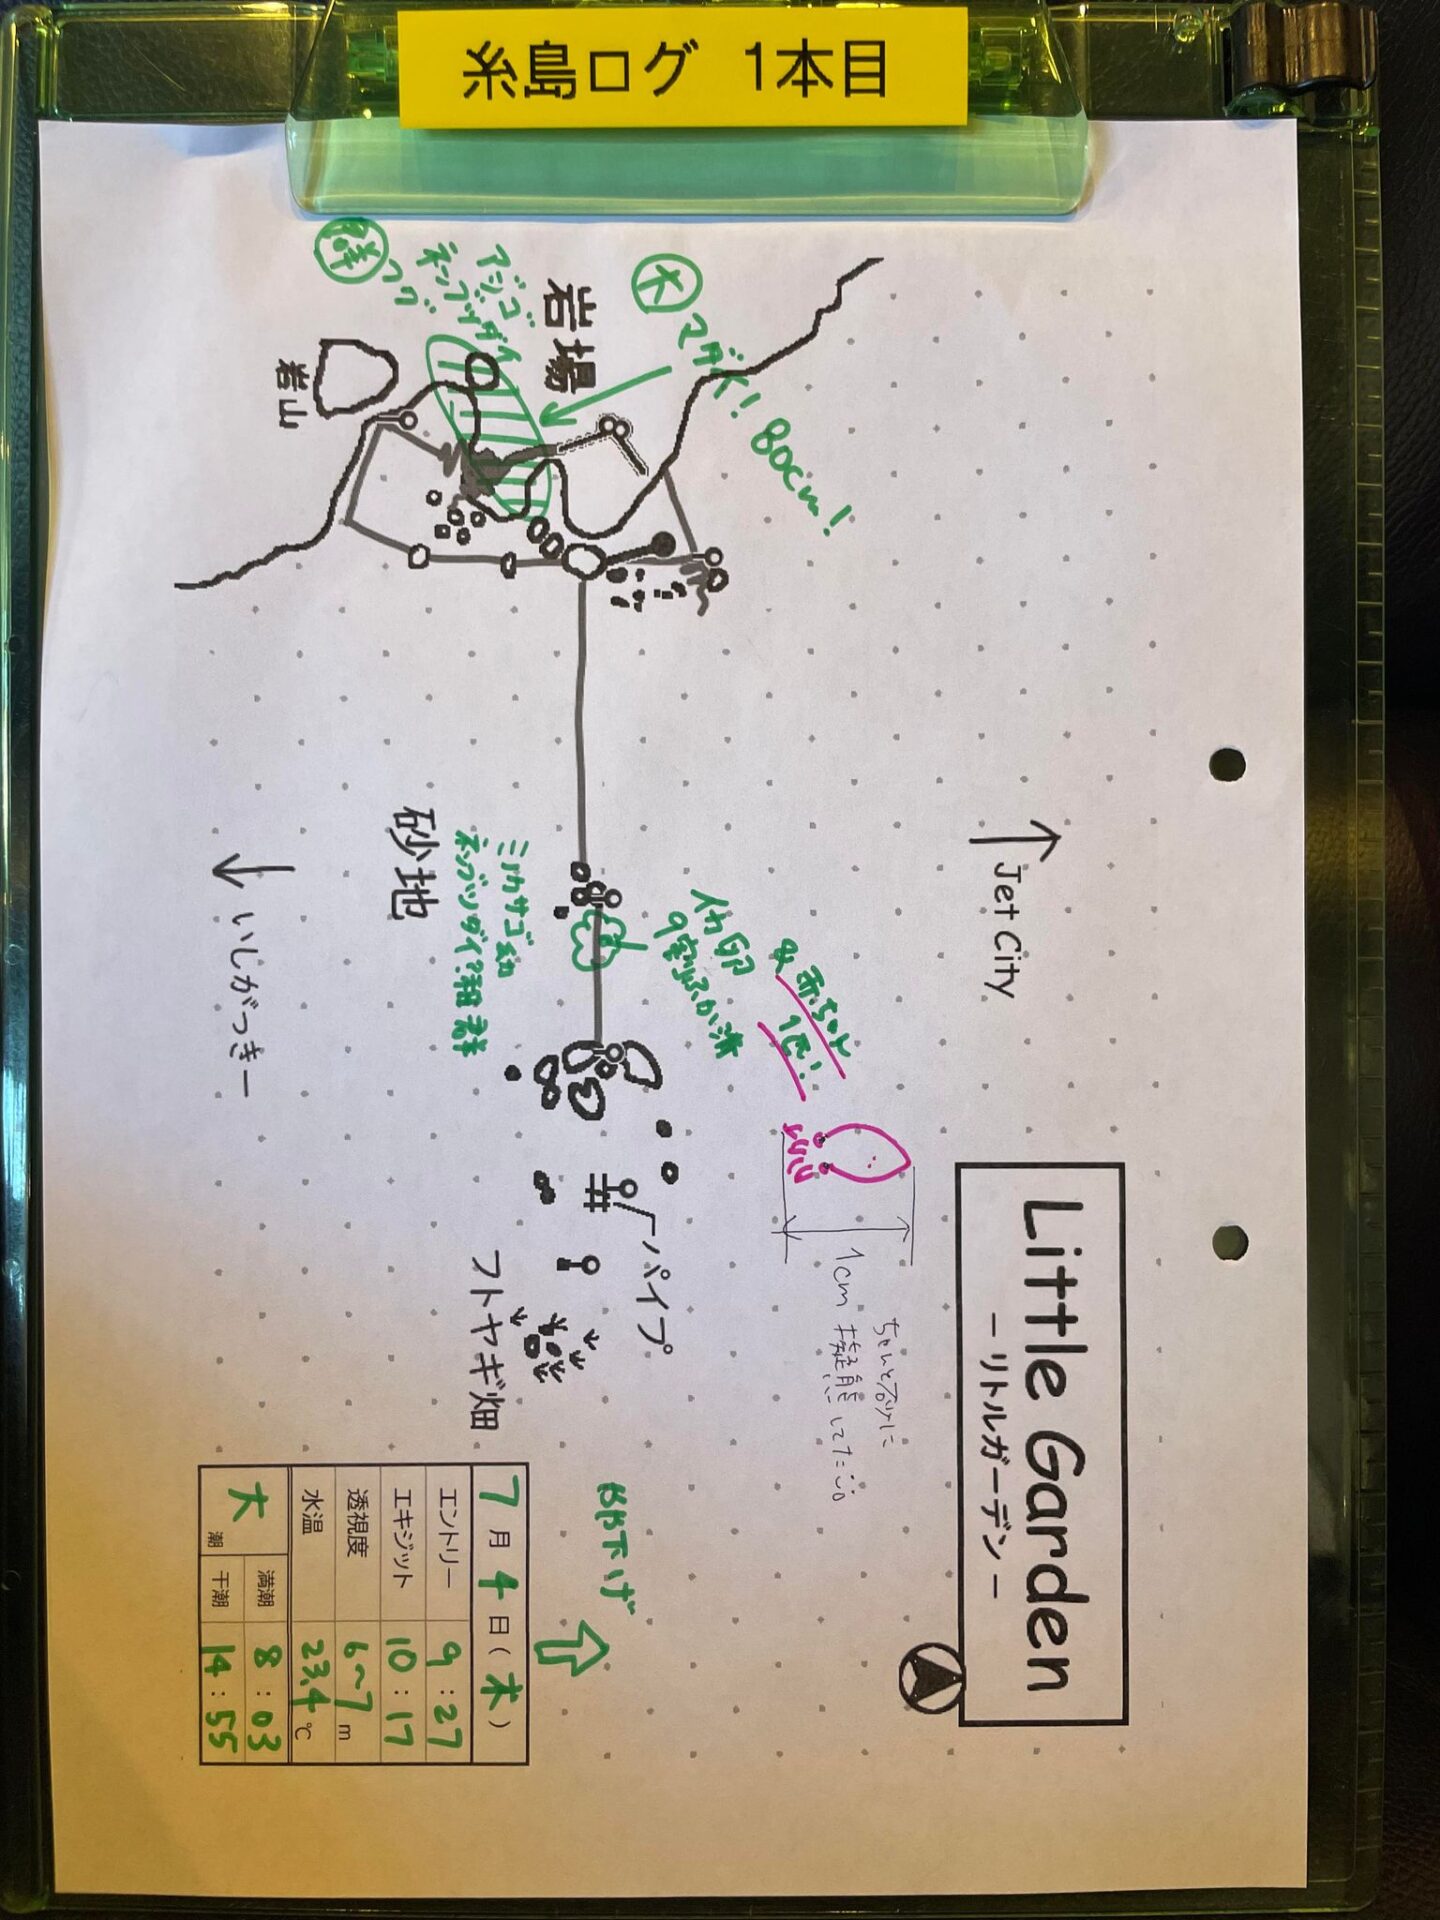 糸島ログ 1本目
Little Garden
－リトルガーデン－
↑ Jet City
大
マダイ! 80cm!
岩場
アジゴ
ネンブツダイ
フグ
群
岩山
イカ卵
9割ふ化済
& 赤ちゃん
1匹!
1cm
ちゃんと石少に
擬態してた
砂地
ミノカサゴ幼
ネンブツダイ?稚 群
↓ いしがっきー
パイプ
フトヤギ畑
下げ
7月4日(木)
エントリー 9:27
エキジット 10:17
透視度 6~7 m
水温 23.4 ℃
大 潮
満潮 8:03
干潮 14:55